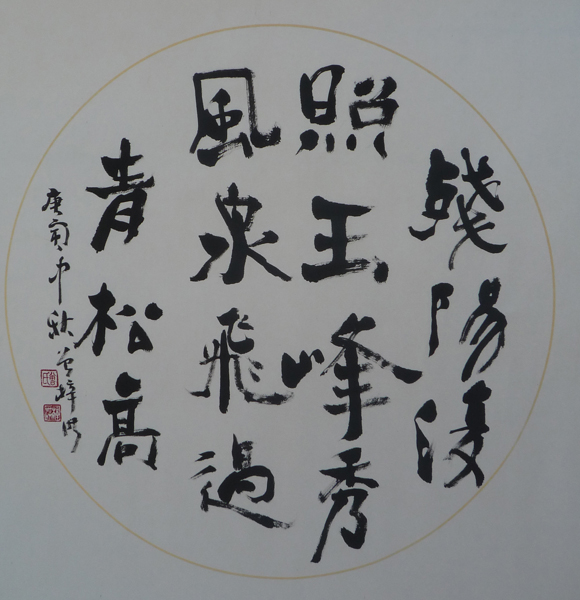 殘陽復
照玉峰秀
風泉飛過
青松高
庚寅中秋